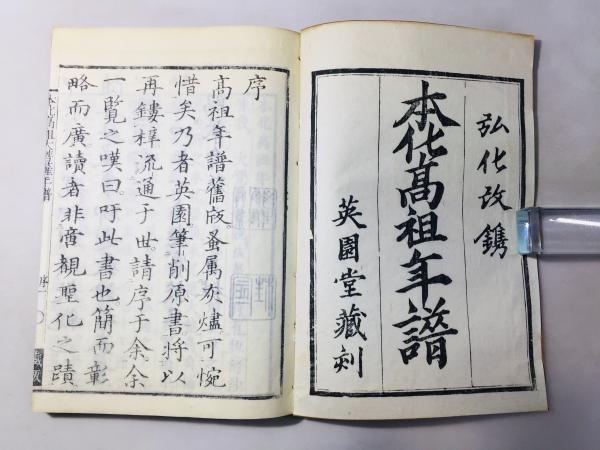 弘化改鐫
本化高祖年譜
英園堂藏刻
序
高祖年譜舊版。蚤属灰燼可惋
惜矣乃者英園筆削原書將以
再鏤梓流通于世請序于余余
一覽之嘆曰。吁此書也簡而彰
略而廣讀者非廣観聖化之蹟
序